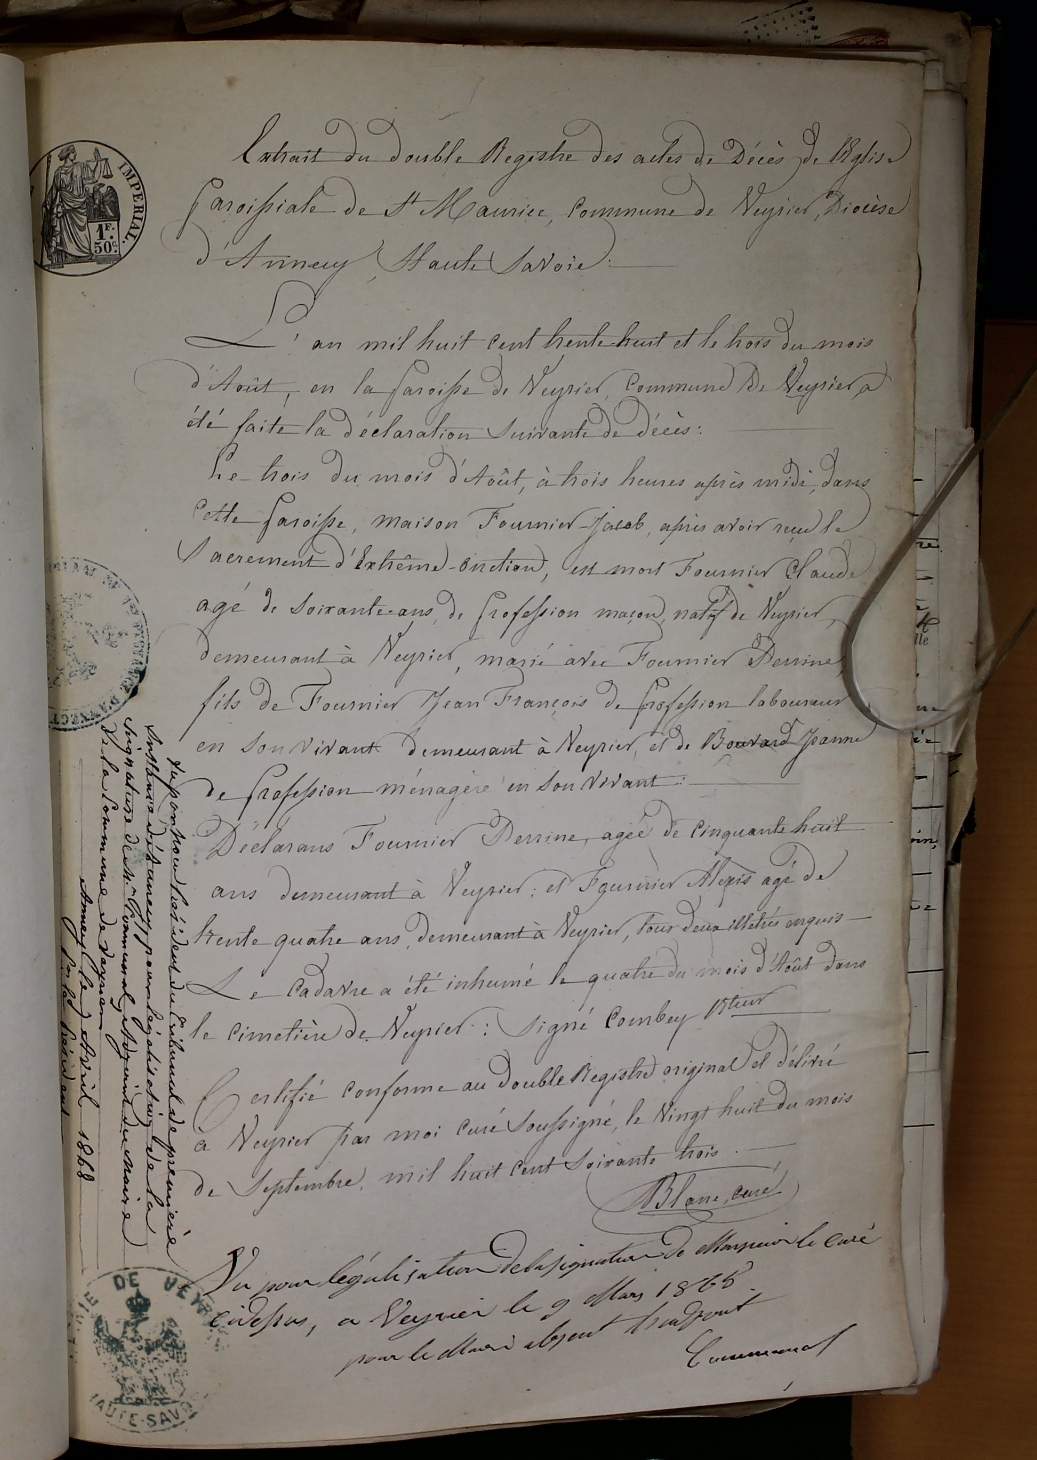 Extrait du double Registre des actes de Décès de l'Eglise
Paroissiale de St Maurice, commune de Veyrier, Diocèse
d'Annecy, Haute Savoie.
IMPERIAL.
1F.
50c.
L'an mil huit cent trente-huit et le trois du mois
d'Août, en la Paroisse de Veyrier, commune de Veyrier a
été faite la déclaration suivante de décès:
Le trois du mois d'Août, à trois heures après midi, dans
cette Paroisse, maison Fournier-Jacob, après avoir reçu le
Sacrement d'Extrême-onction, est mort Fournier Claude
agé de soixante ans, de Profession maçon, natif de Veyrier,
demeurant à Veyrier, marié avec Fournier Perrine,
fils de Fournier Jean François de profession laboureur
en son vivant demeurant à Veyrier, et de Bouvard Jeanne
de Profession ménagère en son vivant:
Déclarans Fournier Perrine, agée de cinquante huit
ans demeurant à Veyrier: et Fournier Alexis agé de
trente quatre ans, demeurant à Veyrier, tous deux illétrés enquis
Le cadavre a été inhumé le quatre du mois d'Août dans
le cimetière de Veyrier: Signé Combey Rteur
Certifié conforme au double Registre original et délivré
à Veyrier par moi curé soussigné, le vingt huit du mois
de Septembre mil huit cent soixante trois.
Blanc, curé
Vu pour légalisation de la signature de Monsieur le Curé
cidessus, a Veyrier le 9 Mars 1868
pour le Maire absent l'adjoint
Vu par nous Président du Tribunal de première
instance d'Annecy pour légalisation de la
signature de Mr adjoint du maire
de la Commune de Veyrier
Annecy le Avril 1868
Le Président
DE VEYR
HAUTE-SAVOIE